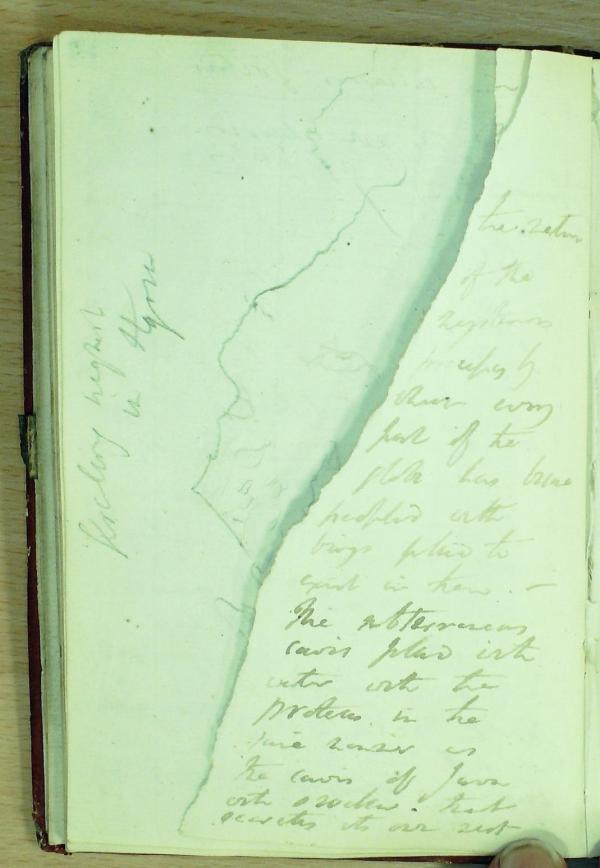 in Styria
the
of the
mysterious
by
which every
part of the
globe has been
peopled with
beings fitted to
exist in them. —
The subterraneous
caves filled with
water with the
proteus in the
same manner as
the caves of Java
with swallow that
secretes its own nest